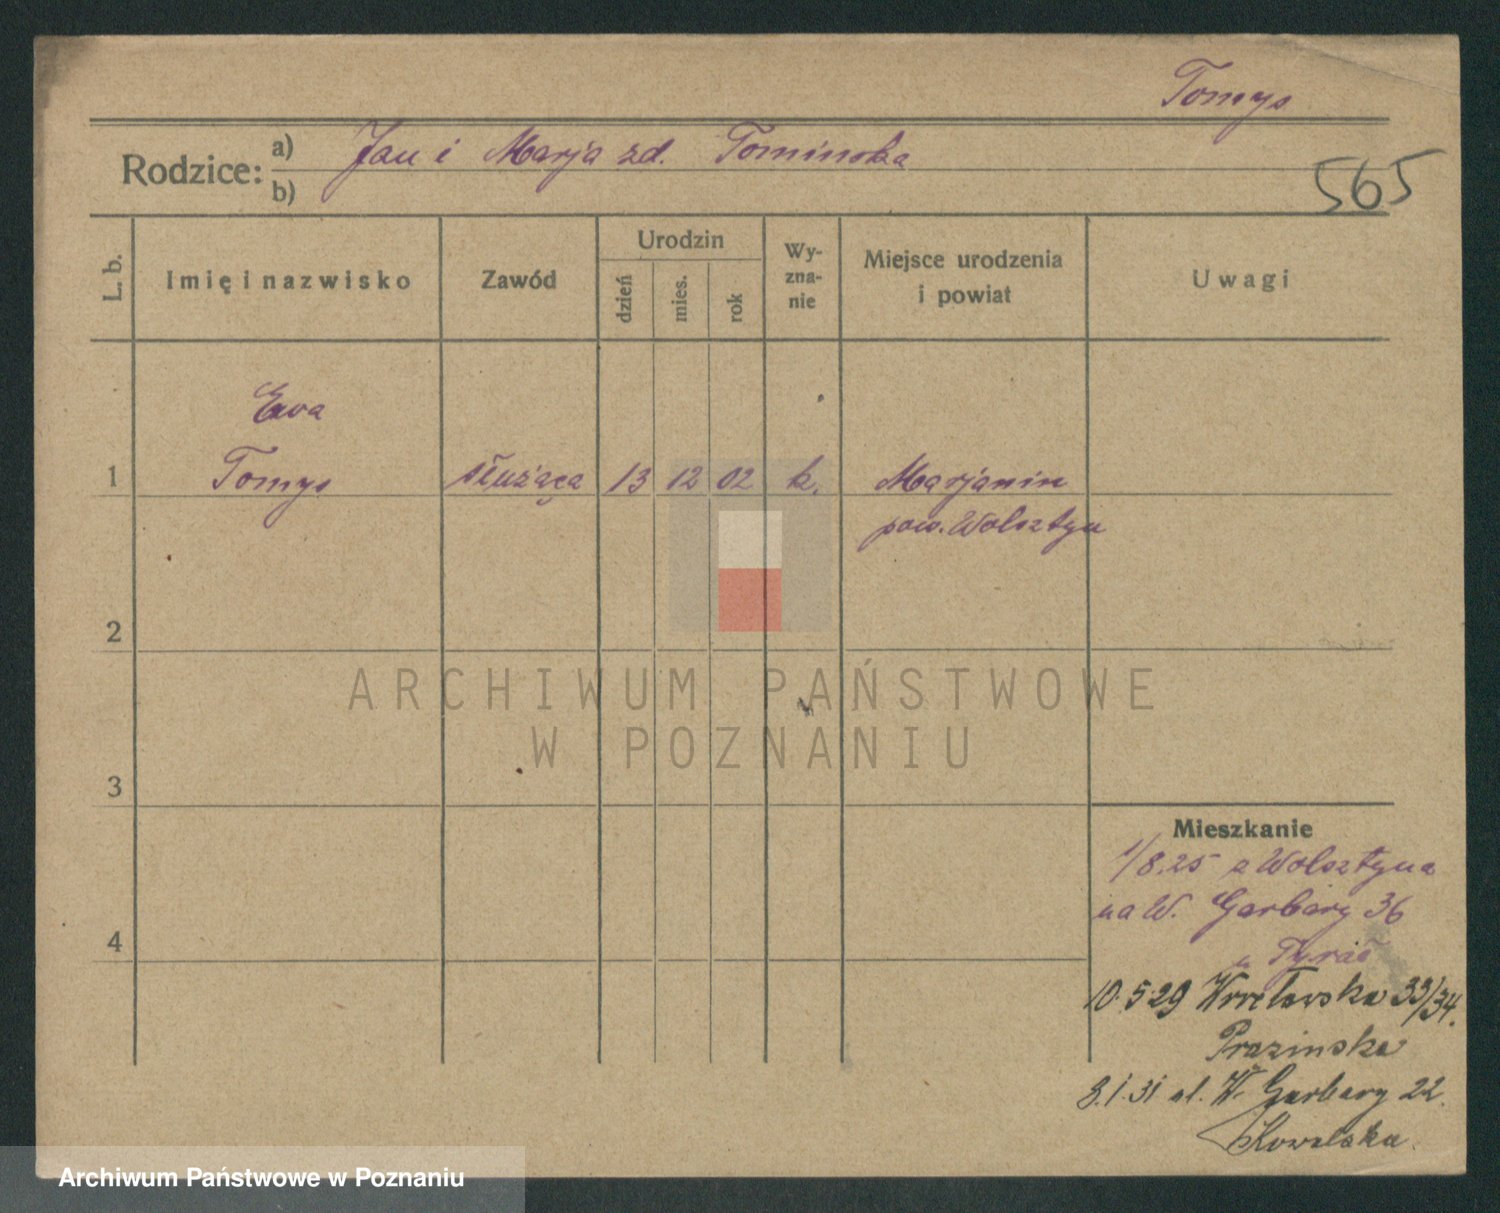 Tomys
Rodzice: a) Jan i Marja zd. Tominska
b)
565
L. b.
Imię i nazwisko
Zawód
Urodzin
dzień
mies.
rok
Wy-
zna-
nie
Miejsce urodzenia
i powiat
Uwagi
Ewa
1 Tomys służąca 13 12 02 k. Marjanin
pow. Wolsztyn
2
ARCHIWUM PAŃSTWOWE
W POZNANIU
3
Mieszkanie
1/8.25 z Wolsztyna
na W. Garbary 36
4
10.5.29 33/34.
Prazinska
8.1.31 ul. W. Garbary 22.
Kowalska
Archiwum Państwowe w Poznaniu